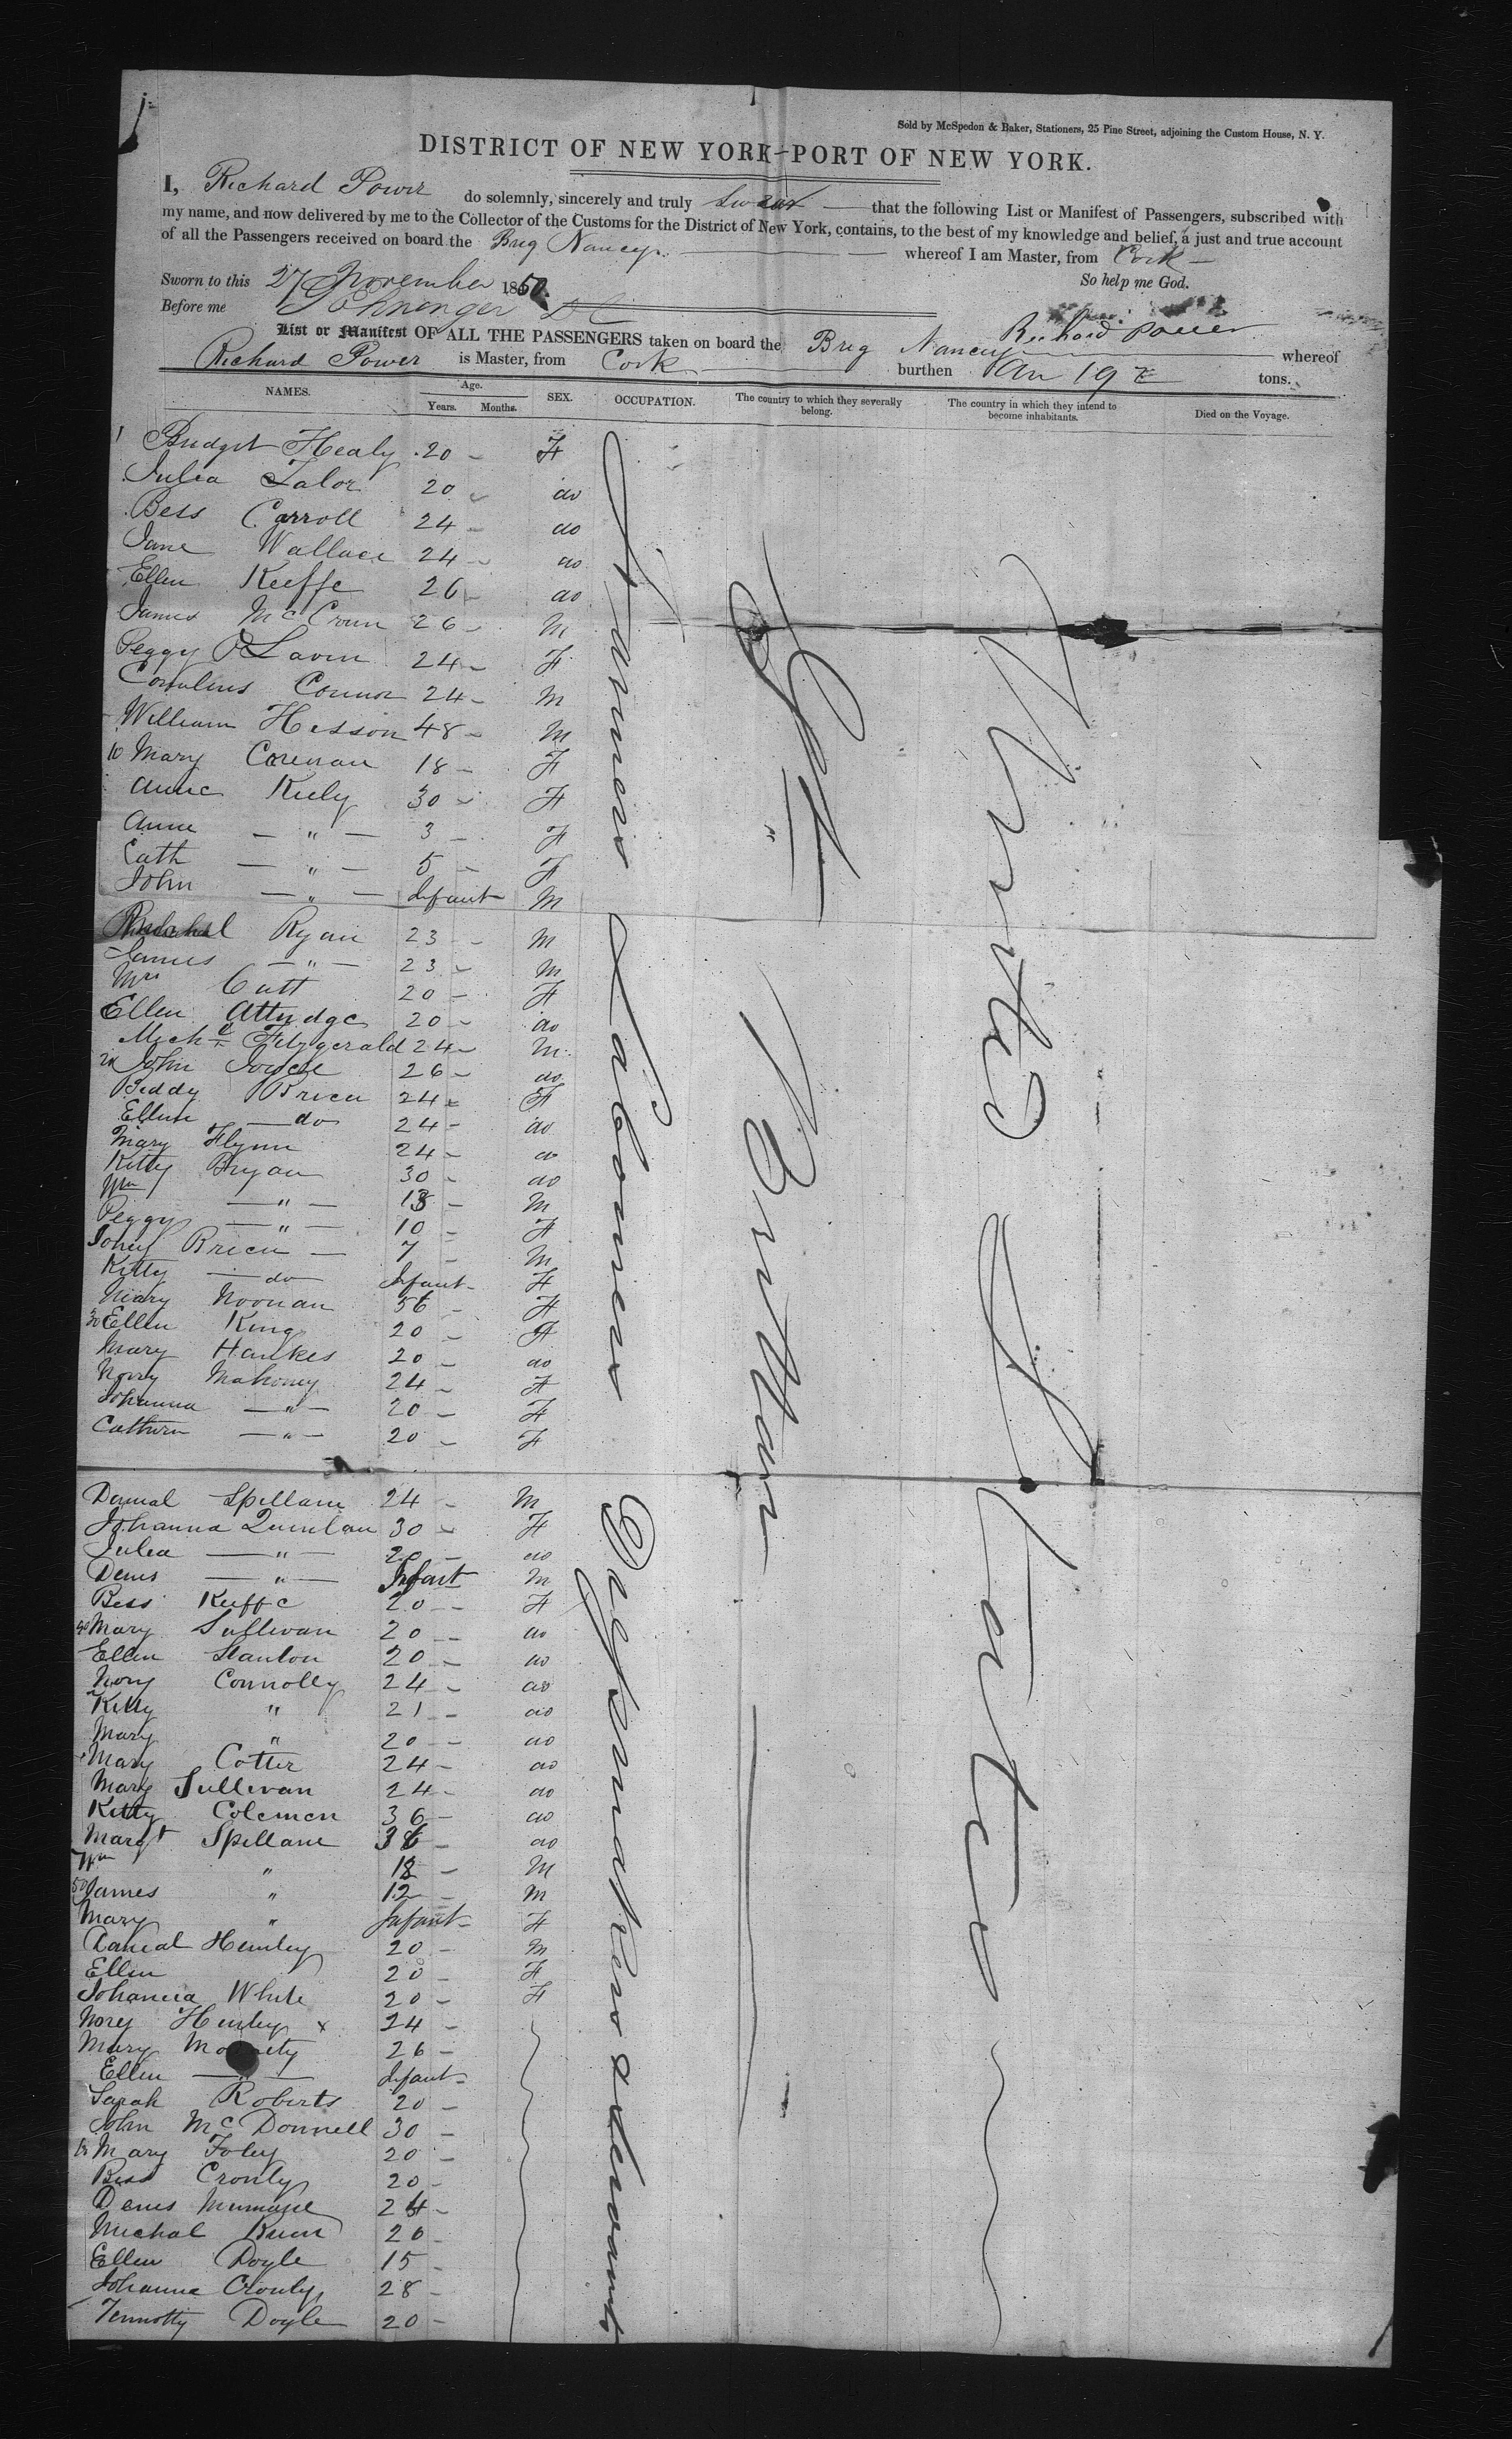 Sold by McSpedon & Baker, Stationers, 25 Pine Street, adjoining the Custom House, N. Y.
DISTRICT OF NEW YORK—PORT OF NEW YORK.
I, Richard Power do solemnly, sincerely and truly swear — that the following List or Manifest of Passengers, subscribed with
my name, and now delivered by me to the Collector of the Customs for the District of New York, contains, to the best of my knowledge and belief, a just and true account
of all the Passengers received on board the Brig Nancy — whereof I am Master, from Cork —
Sworn to this 27 November 1850. So help me God.
Before me
Richard Power
List or Manifest OF ALL THE PASSENGERS taken on board the Brig Nancy whereof
Richard Power is Master, from Cork burthen 197 tons.
NAMES. Age. Years. Months. SEX. OCCUPATION. The country to which they severally belong. The country in which they intend to become inhabitants. Died on the Voyage.
1 Bridget Healy 20 – F
Julia Talor 20 – do
Bess Carroll 24 – do
Jane Wallace 24 – do
Ellen Keeffe 26 – do
James McCrun 26 – M
Peggy Lavin 24 – F
Cornelius Connor 24 – M
William Hesson 48 – M
10 Mary Corenan 18 – F
Anne Kiely 30 – F
Anne — " — 3 – F
Cath — " — 5 – F
John — " — Infant M
Ryan 23 – M
James — " — 23 – M
Mrs Cutt 20 – F
Ellen Attridge 20 – do
Michl Fitzgerald 24 – M
20 John Joyce 26 – do
Biddy Brien 24 – F
Ellen — do 24 – do
Mary Flynn 24 – do
Kitty Bryan 30 – do
Wm — " — 13 – M
Peggy — " — 10 – F
John Brien — 7 – M
Kitty — do Infant – F
Mary Noonan 56 – F
30 Ellen King 20 – F
Mary Hankes 20 – do
Nory Mahoney 24 – F
Johanna — " — 20 – F
Cathern — " — 20 – F
Danial Spillane 24 – M
Johanna Quinlan 30 – F
Julia — " — 20 – do
Denis — " — Infant M
Bess Keeffe 20 – F
40 Mary Sullivan 20 – do
Ellen Stanton 20 – do
Nory Connolly 24 – do
Kitty " 21 – do
Mary " 20 – do
Mary Cotter 24 – do
Mary Sullivan 24 – do
Kitty Colemen 36 – do
Margt Spillane 36 – do
Wm " 18 – M
50 James " 12 – M
Mary " Infant – F
Danial Henley 20 – M
Ellen 20 – F
Johanna White 20 – F
Nory Henley x 24 –
Mary 26 –
Ellen — " — Infant –
Sarah Roberts 20 –
John McDonnell 30 –
Mary Foley 20 –
Bess Cronly 20 –
Denis Murnane 24 –
Michal Brien 20
Ellen Doyle 15 –
Johanna Cronly 28 –
Timmotty Doyle 20 –
Farmers Labourers Dressmakers & servants
Gt Brittan
United States